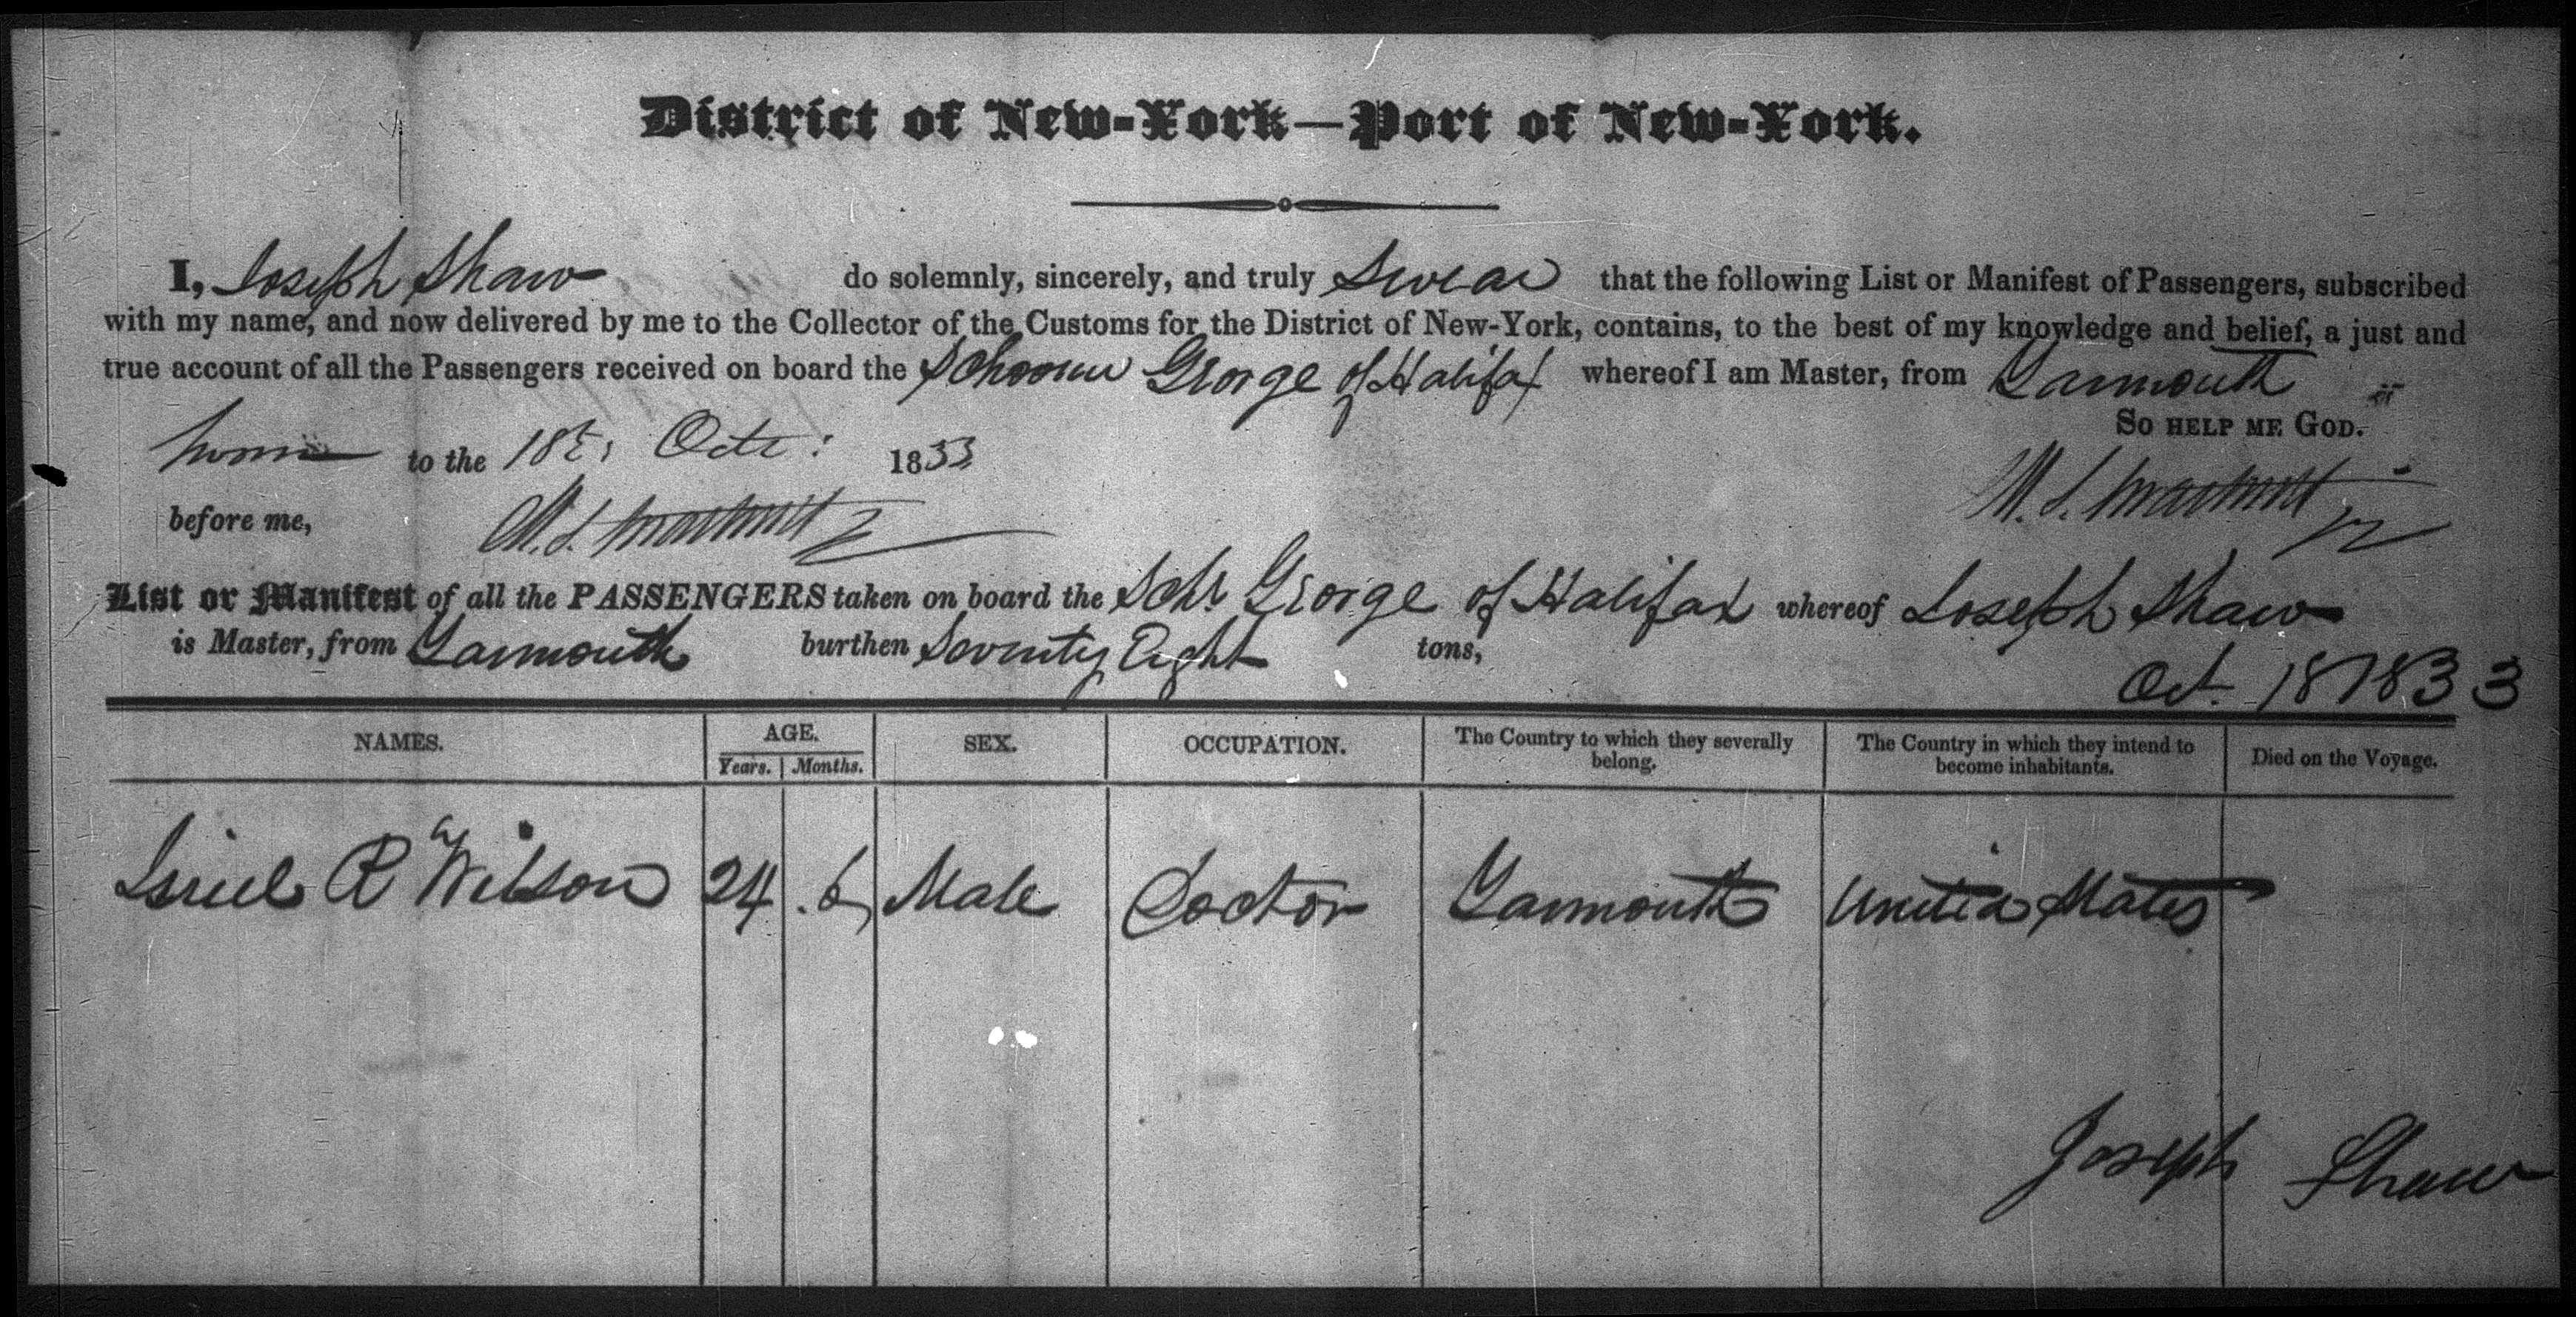 District of New-York—Port of New-York.
I, Joseph Shaw do solemnly, sincerely, and truly Swear that the following List or Manifest of Passengers, subscribed
with my name, and now delivered by me to the Collector of the Customs for the District of New-York, contains, to the best of my knowledge and belief, a just and
true account of all the Passengers received on board the Schooner George of Halifax whereof I am Master, from Yarmouth
So help me God.
to the 18th Octr: 1833
before me,
List or Manifest of all the PASSENGERS taken on board the Schr George of Halifax whereof Joseph Shaw
is Master, from Yarmouth burthen Seventy Eight tons,
Oct. 18 1833
NAMES. AGE. SEX. OCCUPATION. The Country to which they severally belong. The Country in which they intend to become inhabitants. Died on the Voyage.
Years. Months.
R Wilson 24 6 Male Doctor Yarmouth United States
Joseph Shaw